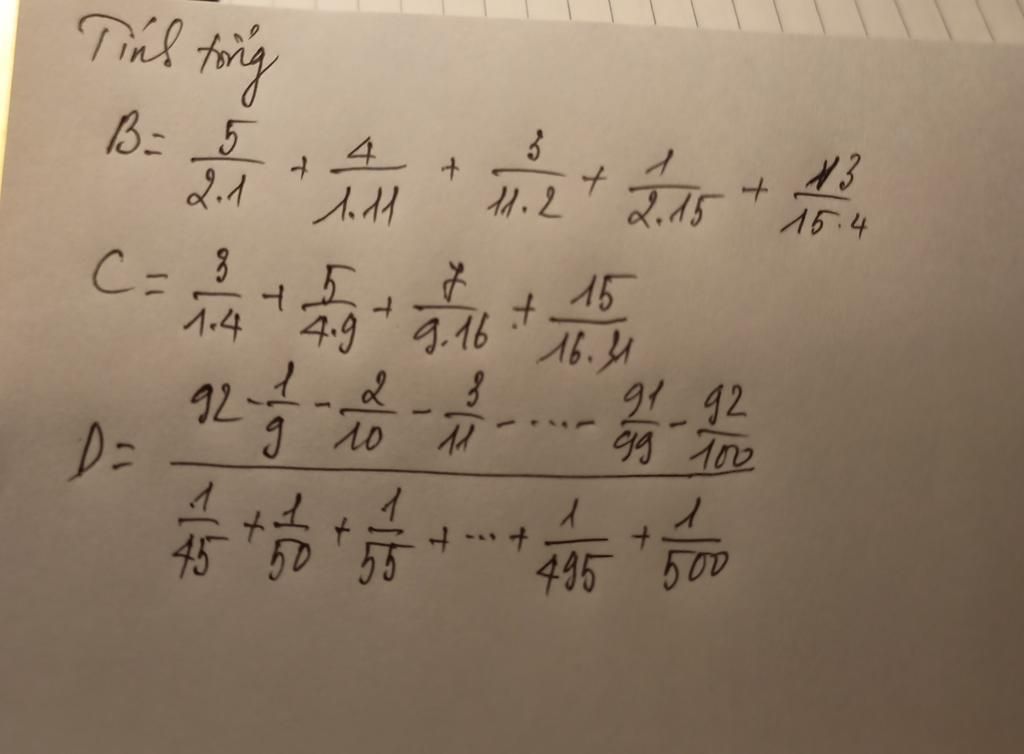 Tính tổng
B = 5/2.1 + 4/1.11 + 3/11.2 + 1/2.15 + 13/15.4
C = 3/1.4 + 5/4.9 + 7/9.16 + 15/16.31
D = (92 - 1/9 - 2/10 - 3/11 - .... - 91/99 - 92/100) / (1/45 + 1/50 + 1/55 + ... + 1/495 + 1/500)